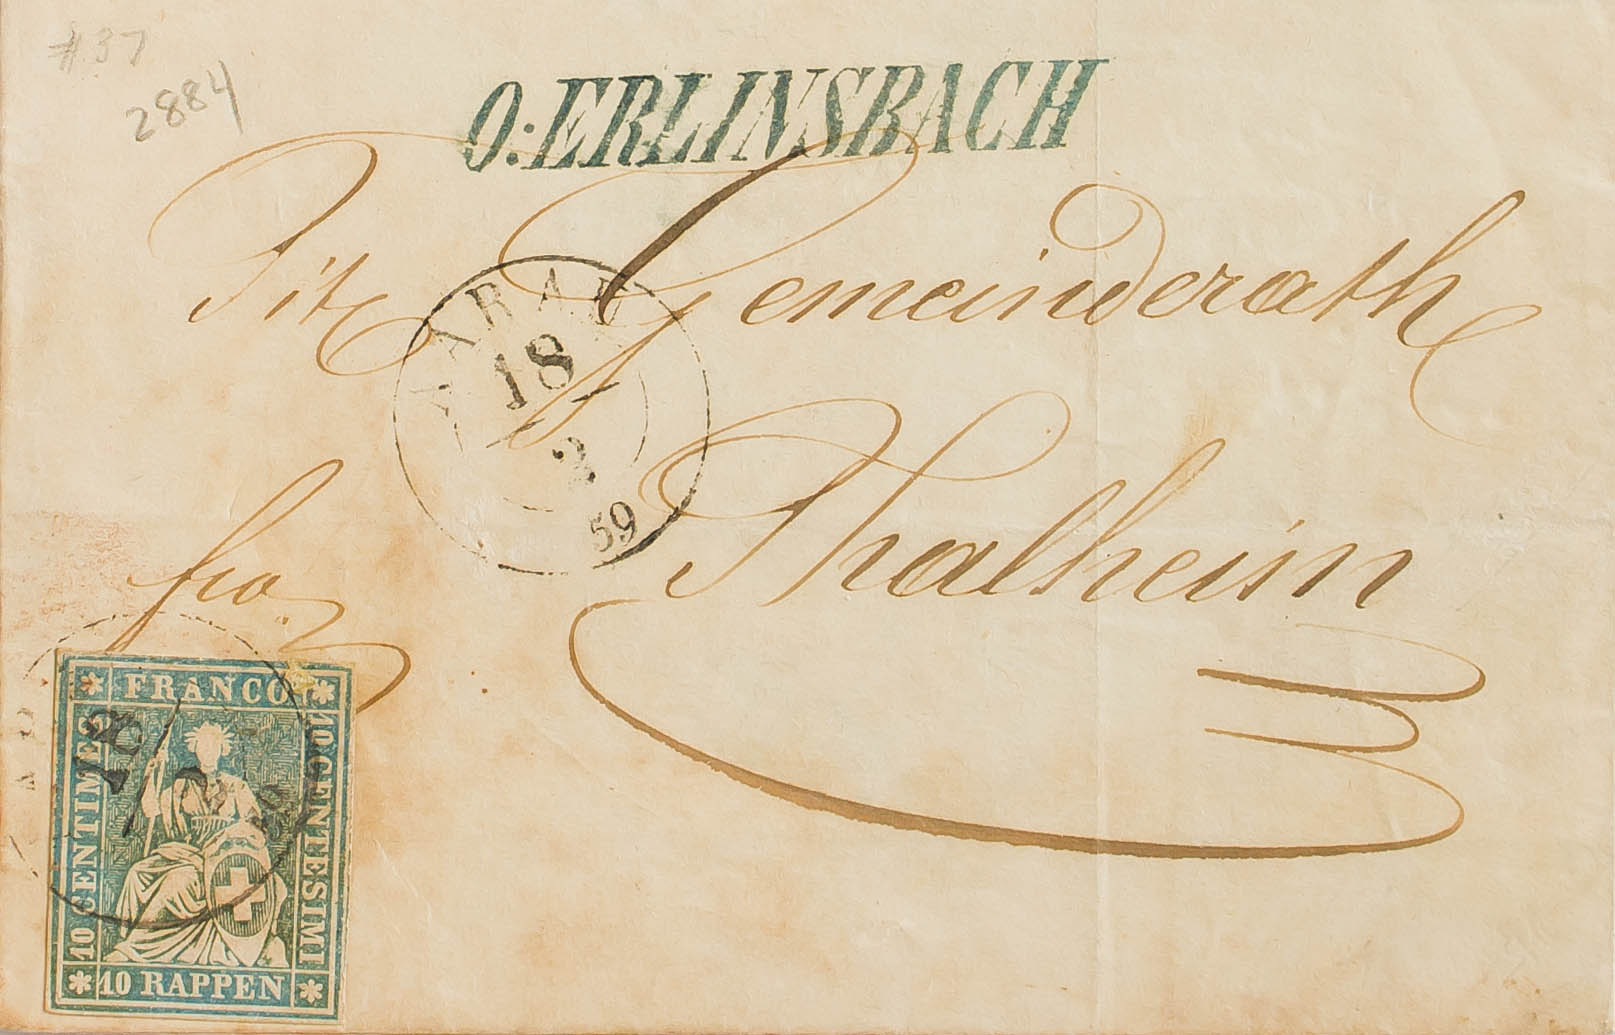 #37
2884
O: ERLINSBACH
Tit. Gemeinderath
AARAU
18
2
59
Thalheim
fco.
FRANCO
10 CENTIMES
10 CENTESIMI
10 RAPPEN
18
2